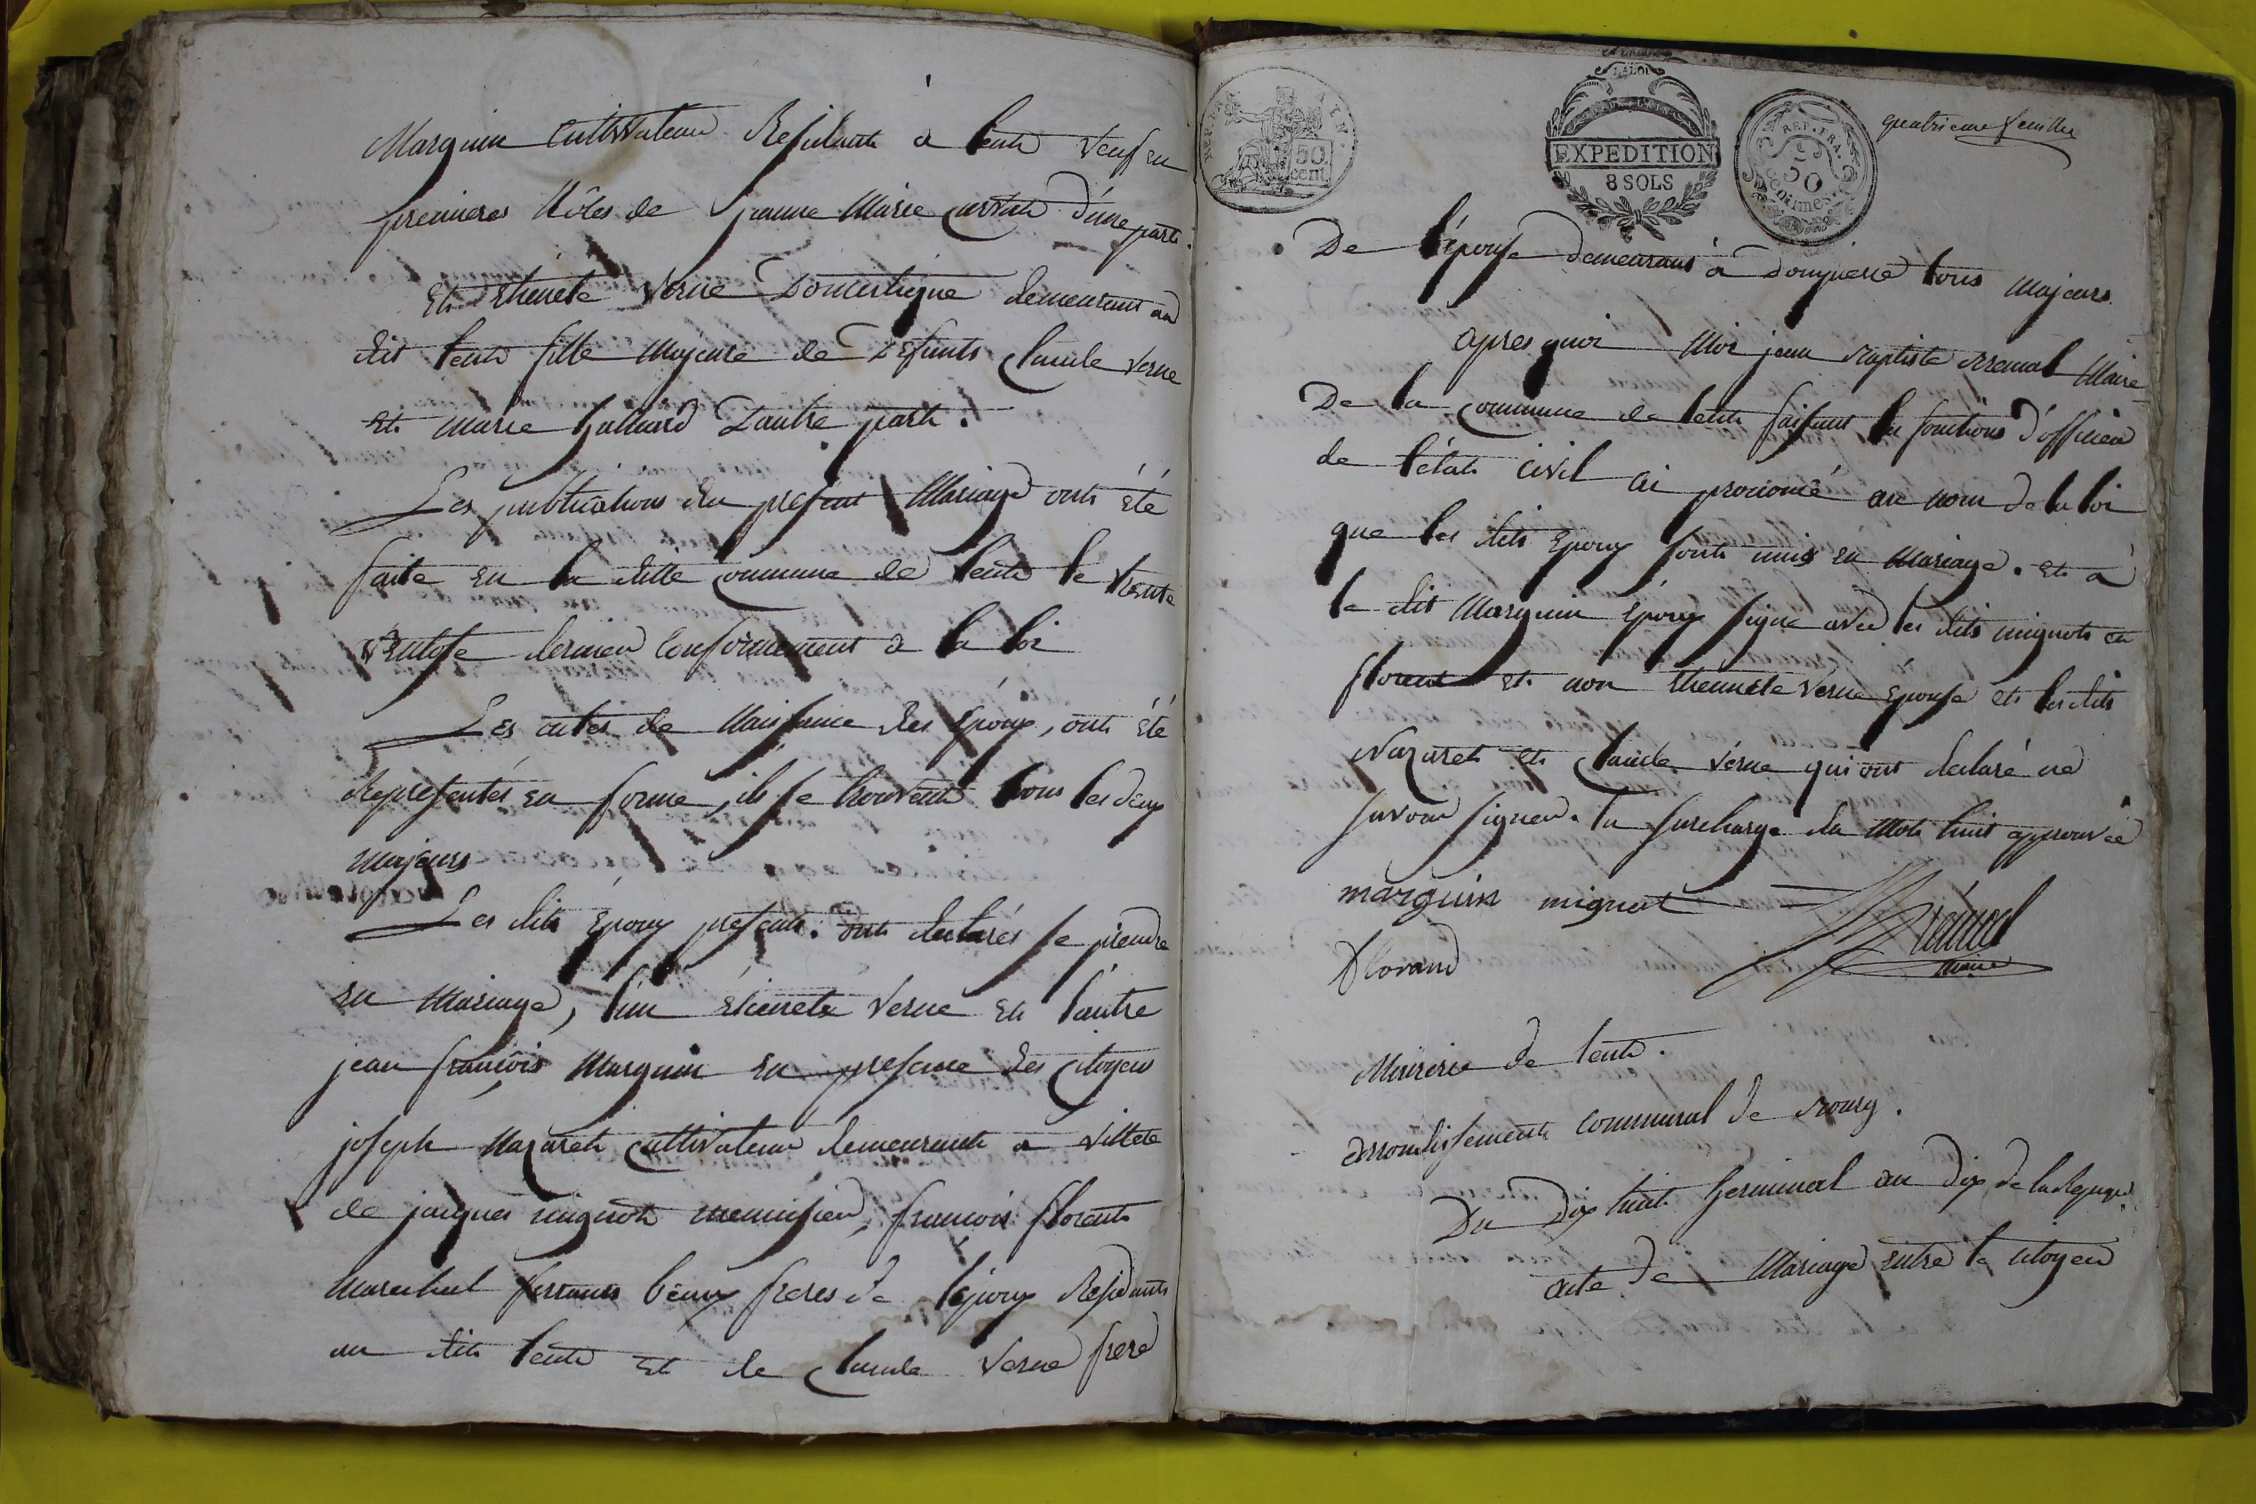 Marguin cultivateur Residante à lente veuf en
premieres Nôces de jeanne Marie d'une part.
Et Etienete Verne Domestique demeurant au
dit lente fille majeure de Defunts Claude Verne
et marie Galliard D'autre part.
Les publications du present Mariage onts été
faite en la ditte Commune de lente le trente
Ventose dernier Conformement a la loi
Les actes de Naissance des Epoux, onts été
Representés en forme, ils se trouvents tous les deux
majeurs
Les dits Epoux presents. onts declarés se prendre
en Mariage, l'un etienete Verne et l'autre
jean françois Marguin en presence des Citoyens
joseph Nazareth Cultivateur demeurante a Villete
de jacques mignots menuisier, francois florents
marechal ferrants beaux freres de l'epoux Residants
au dits lente et de Claude Verne frere
REP. FRA.
50
cent.
LA LOI
EXPEDITION
8 SOLS
REP. FRA.
50
CENTIMES
quatrieme feuillet
De l'épouse demeurants à Dompierre tous majeurs.
apres quoi Moi jean Baptiste Brenal Maire
De la commune de lente faisant les fonctions d'officier
de l'états civil ai prononcé au nom de la loi
que les dits Epoux sonts unis en Mariage. Et à
le dit Marguin Epoux signé avec les dits mignots et
florent et non etiennete Verne Epouse et les dits
Nazareth et Claude Verne qui ont declaré ne
savoir signer. la surcharge du Mots huit approuvée
marguin mignot Brénal
maire
Florand
Mairerie de lente.
Arrondissements Communal de Bourg.
Du Dix huit Germinal an Dix de la Repuque
acte de Mariage entre le Citoyen